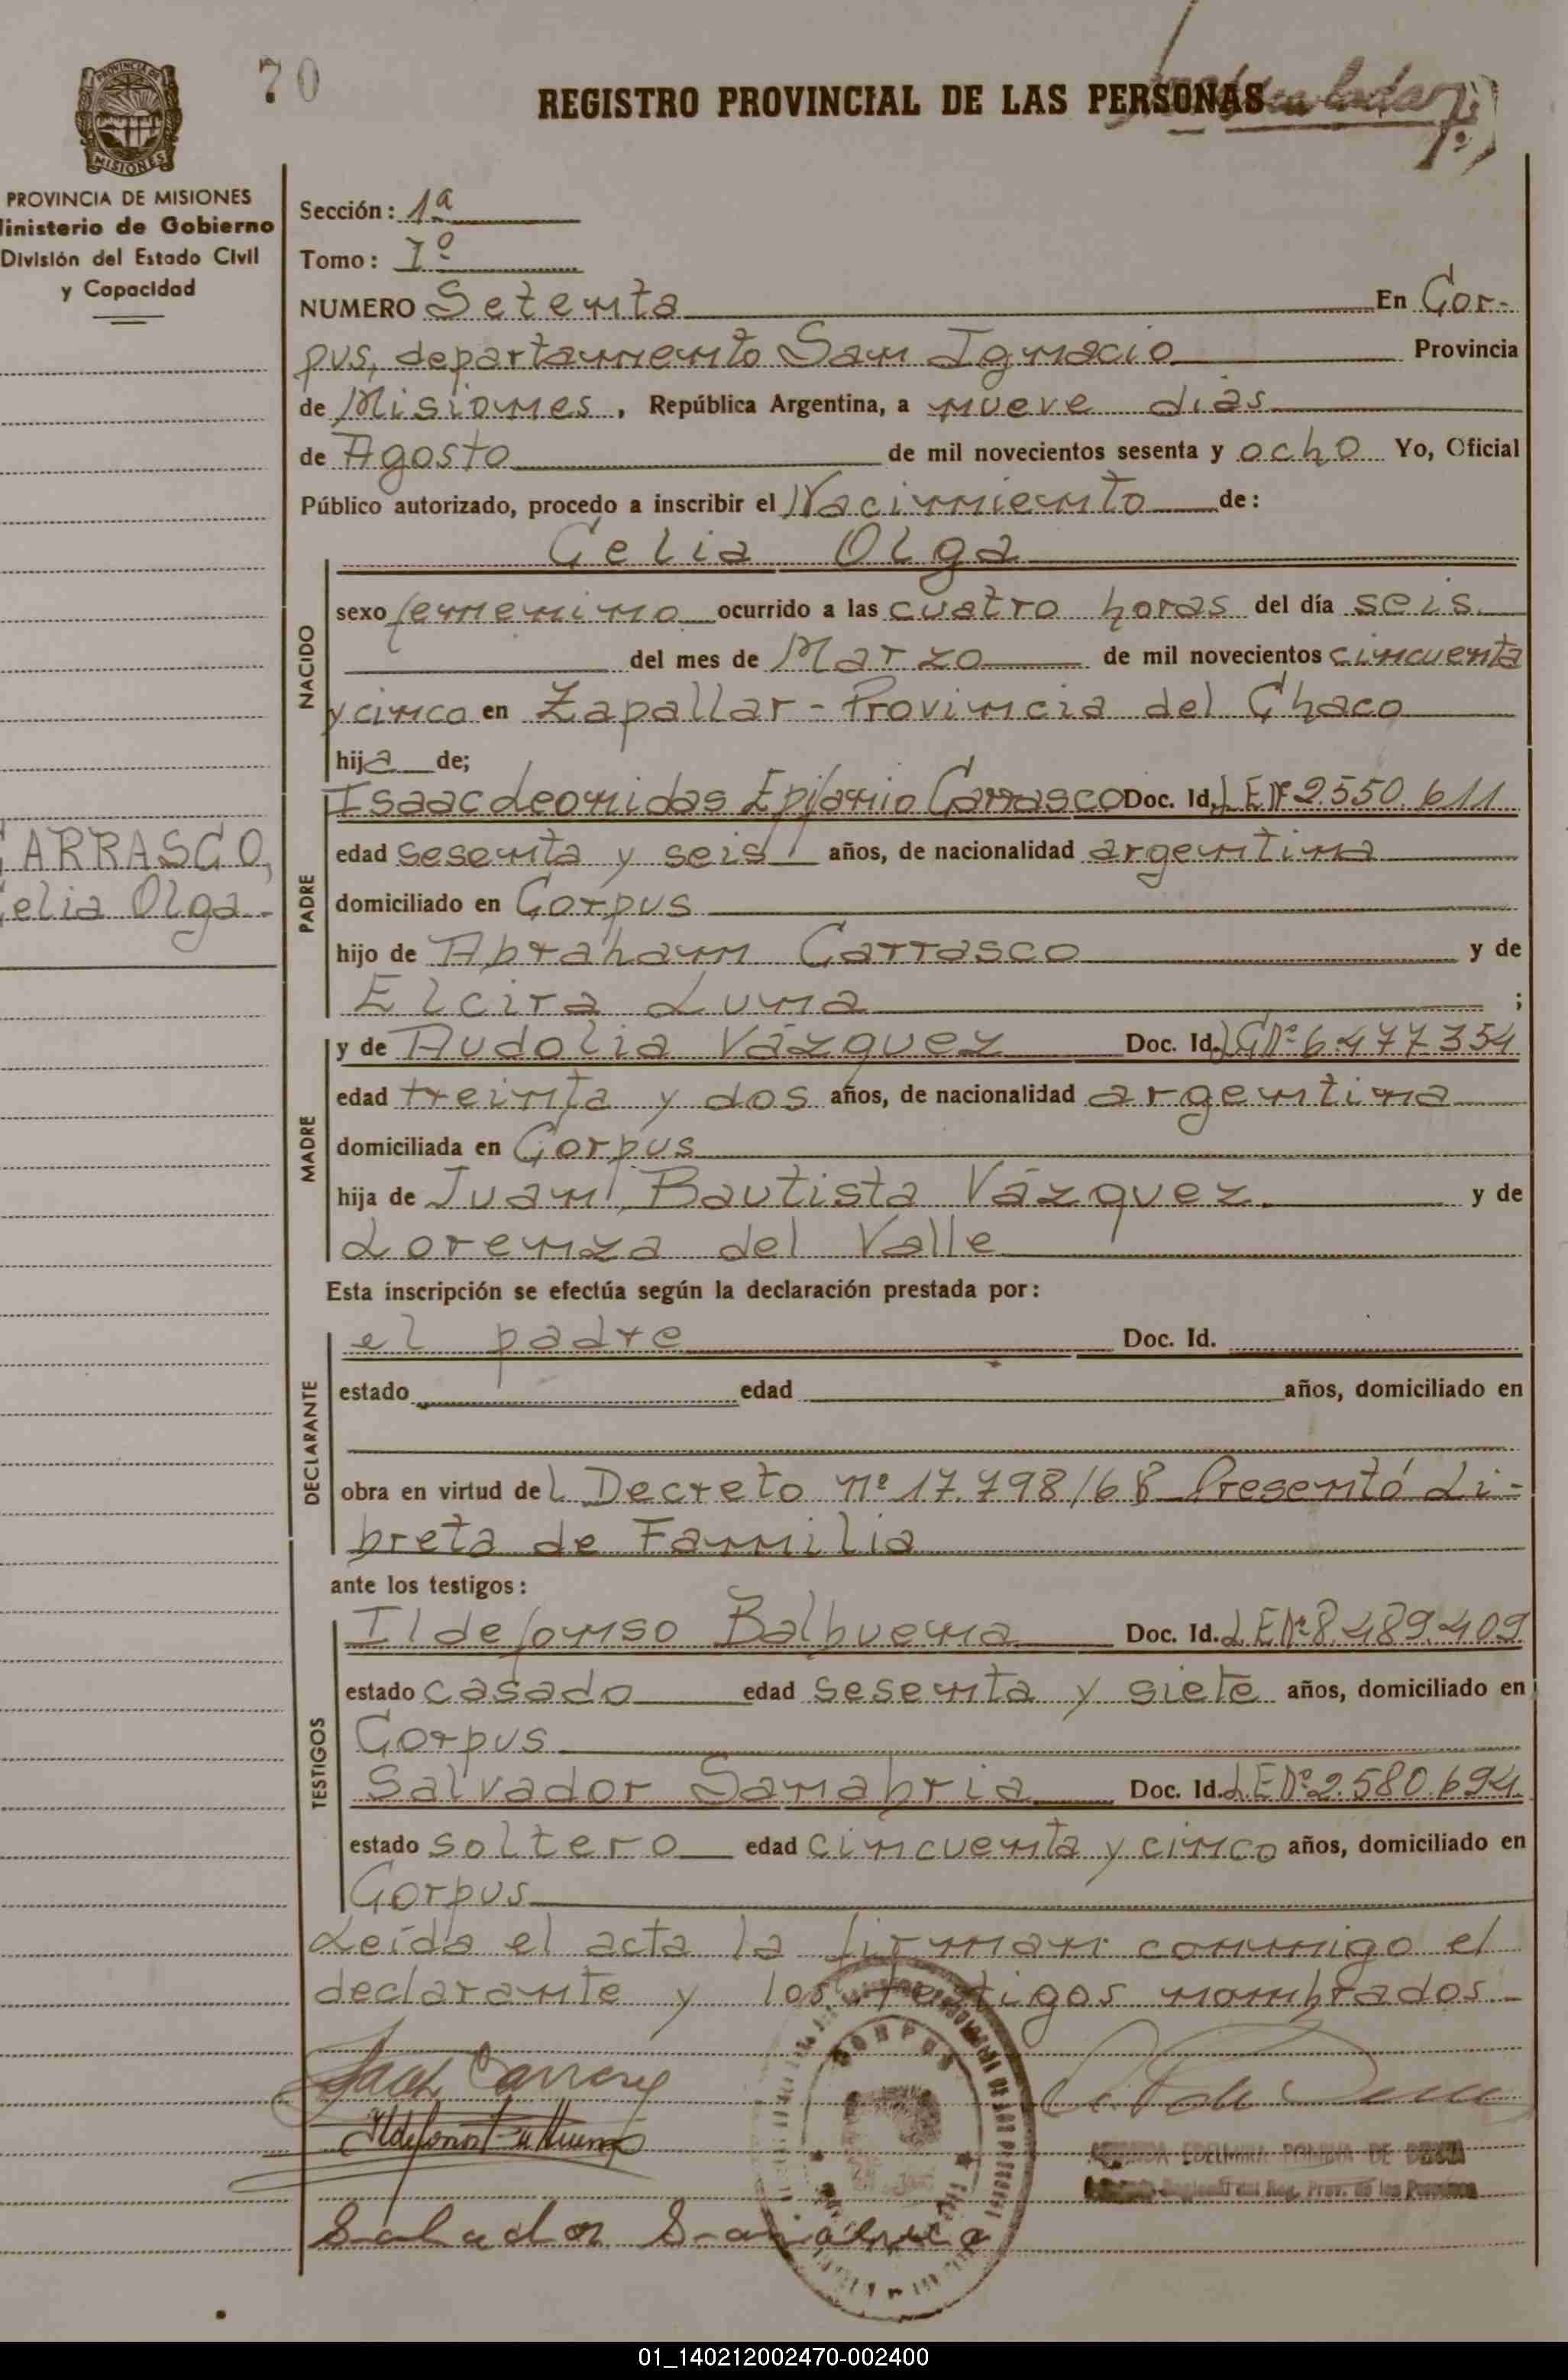 70
REGISTRO PROVINCIAL DE LAS PERSONAS
PROVINCIA DE
MISIONES
PROVINCIA DE MISIONES
Ministerio de Gobierno
División del Estado Civil
y Capacidad
Sección: 1ª
Tomo: 1º
NUMERO Setenta En Cor-
pus, departamento San Ignacio Provincia
de Misiones, República Argentina, a nueve días
de Agosto de mil novecientos sesenta y ocho Yo, Oficial
Público autorizado, procedo a inscribir el Nacimiento de:
Celia Olga
NACIDO
sexo femenino ocurrido a las cuatro horas del día seis
del mes de Marzo de mil novecientos cincuenta
y cinco en Zapallar - Provincia del Chaco
hija de;
CARRASCO,
Celia Olga.-
PADRE
Isaac Leonidas Epifanio Carrasco Doc. Id. LE Nº 2.550.611
edad sesenta y seis años, de nacionalidad argentina
domiciliado en Corpus
hijo de Abraham Carrasco y de
Elcira Luna ;
MADRE
y de Audolia Vázquez Doc. Id. LC Nº 6.477.354
edad treinta y dos años, de nacionalidad argentina
domiciliada en Corpus
hija de Juan Bautista Vázquez. y de
Lorenza del Valle
Esta inscripción se efectúa según la declaración prestada por:
DECLARANTE
el padre Doc. Id.
estado edad años, domiciliado en
obra en virtud del Decreto nº 17.798/68 Presentó Li-
breta de Familia
ante los testigos:
TESTIGOS
Ildefonso Balbuena Doc. Id. LE Nº 8.489.409
estado casado edad sesenta y siete años, domiciliado en
Corpus
Salvador Sanabria Doc. Id. LE Nº 2.580.694
estado soltero edad cincuenta y cinco años, domiciliado en
Corpus
Leída el acta la firman conmigo el
declarante y los testigos nombrados.-
CORPUS
EDELMIRA DE
Reg. Prov. de las Personas
Salvador Sanabria
01_140212002470-002400